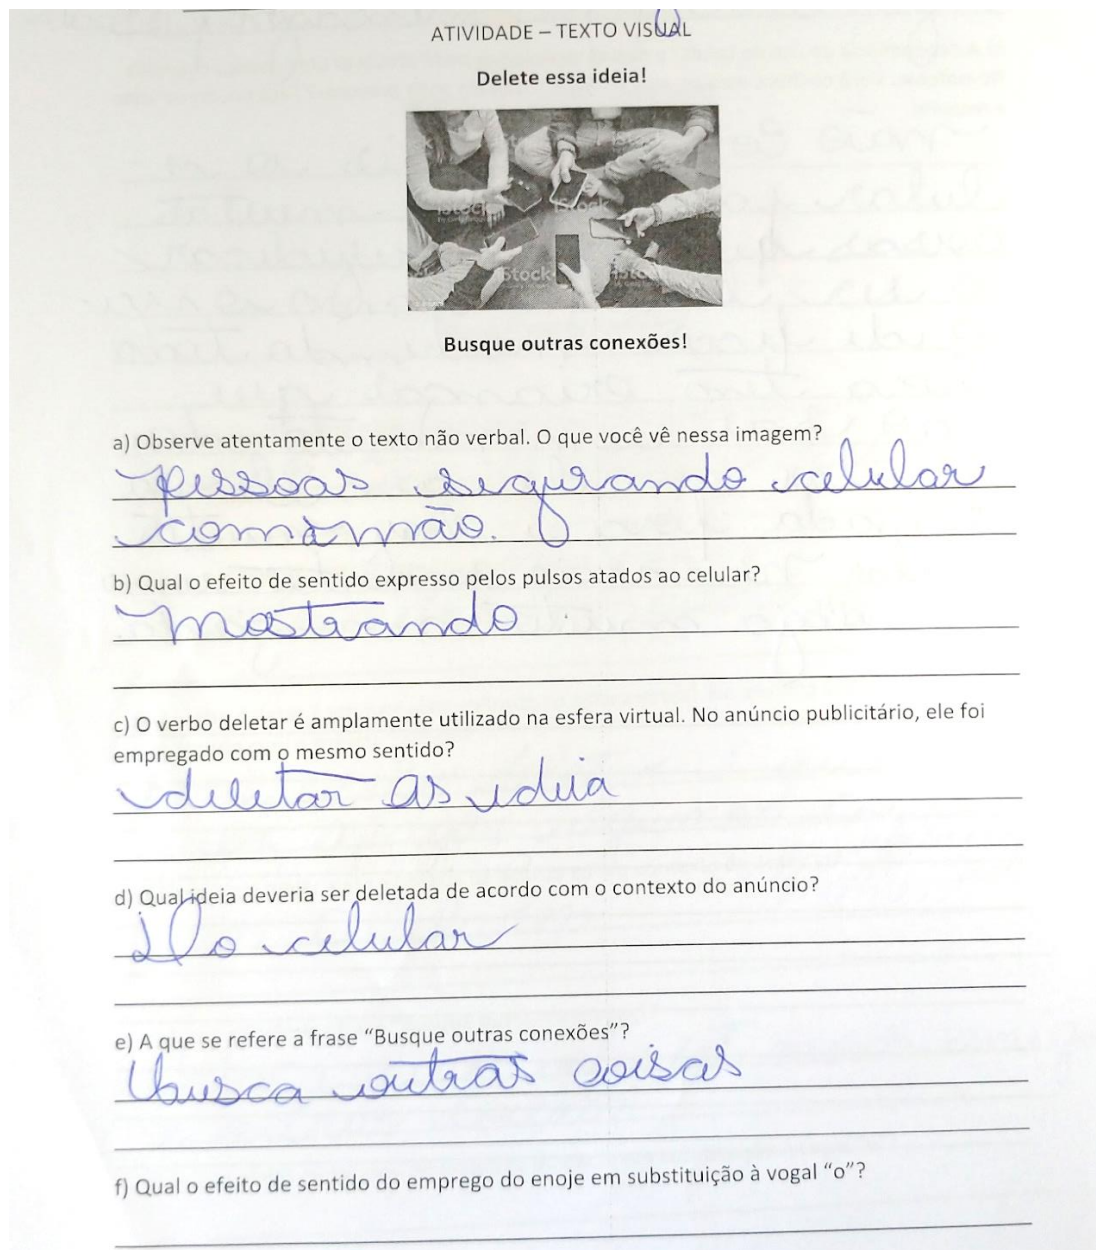 ATIVIDADE – TEXTO VISUAL
Delete essa ideia!
iStock
iStock
iStock
iStock
Busque outras conexões!
a) Observe atentamente o texto não verbal. O que você vê nessa imagem?
pessoas segurando celular
com a mão.
b) Qual o efeito de sentido expresso pelos pulsos atados ao celular?
mostrando
c) O verbo deletar é amplamente utilizado na esfera virtual. No anúncio publicitário, ele foi
empregado com o mesmo sentido?
deletar as ideia
d) Qual ideia deveria ser deletada de acordo com o contexto do anúncio?
Do celular
e) A que se refere a frase “Busque outras conexões”?
busca outras coisas
f) Qual o efeito de sentido do emprego do enoje em substituição à vogal “o”?